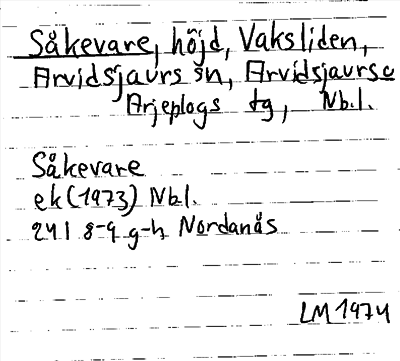 Såkevare, höjd, Vaksliden,
Arvidsjaurs sn, Arvidsjaurs o
Arjeplogs tg, Nb.l.
Såkevare
ek (1973) Nbl.
24I 8-9 g-h Nordanås
LM 1974